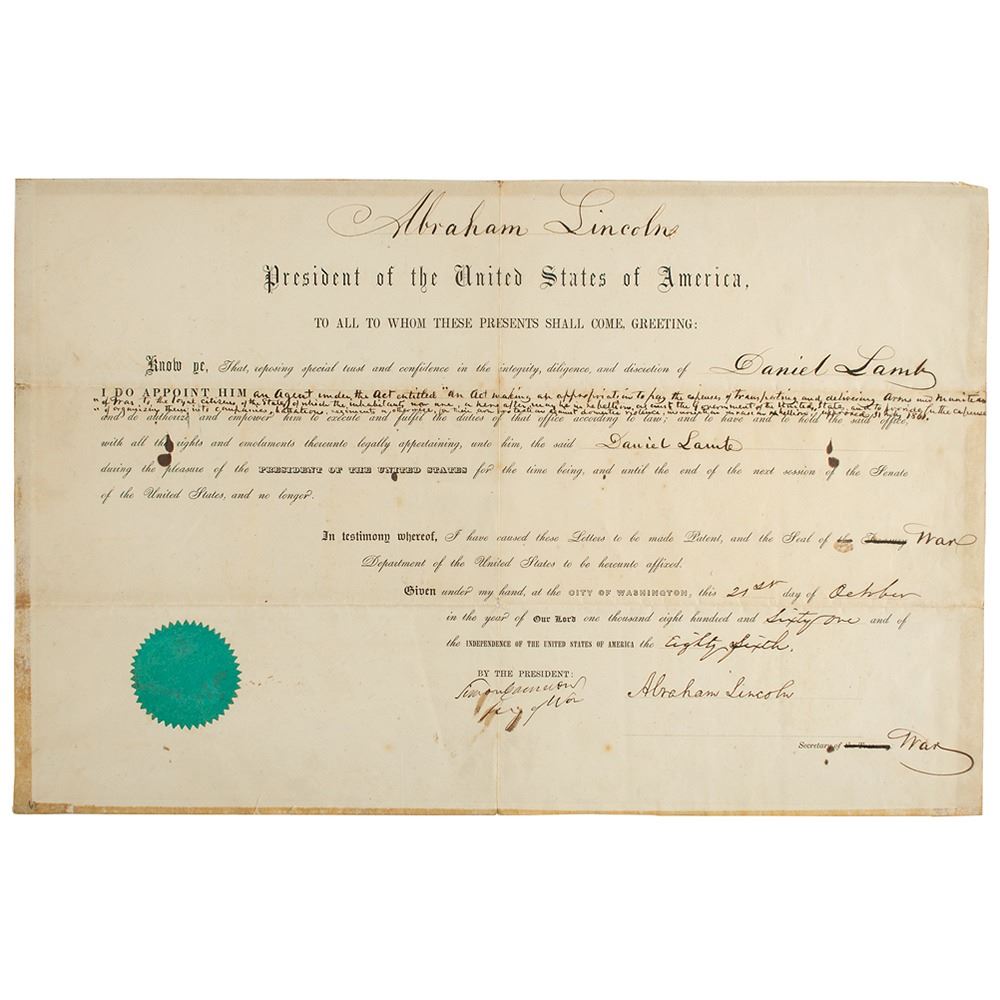 Abraham Lincoln
President of the United States of America,
TO ALL TO WHOM THESE PRESENTS SHALL COME, GREETING:
Know ye, That, reposing special trust and confidence in the integrity, diligence, and discretion of Daniel Lamb
I DO APPOINT HIM an Agent under the Act entitled "an Act making an appropriation to pay the expenses of transporting and delivering Arms and Munitions
" of War to the loyal citizens of the States of which the inhabitants now are, or hereafter may be in rebellion against the Government of the United States, and to provide for the expense
" of organizing them into companies, battalions, regiments or otherwise, for their own protection against domestic violence, insurrection, invasion or rebellion," approved 31 July 1861.
and do authorize and empower him to execute and fulfil the duties of that office according to law; and to have and to hold the said office,
with all the rights and emoluments thereunto legally appertaining, unto him, the said Daniel Lamb
during the pleasure of the PRESIDENT OF THE UNITED STATES for the time being, and until the end of the next session of the Senate
of the United States, and no longer.
In testimony whereof, I have caused these Letters to be made Patent, and the Seal of the Treasury War
Department of the United States to be hereunto affixed.
Given under my hand, at the CITY OF WASHINGTON, this 21st day of October
in the year of Our Lord one thousand eight hundred and Sixty One and of
the INDEPENDENCE OF THE UNITED STATES OF AMERICA the Eighty Sixth.
BY THE PRESIDENT:
Simon Cameron Abraham Lincoln
Secy of War
Secretary of the Treasury War